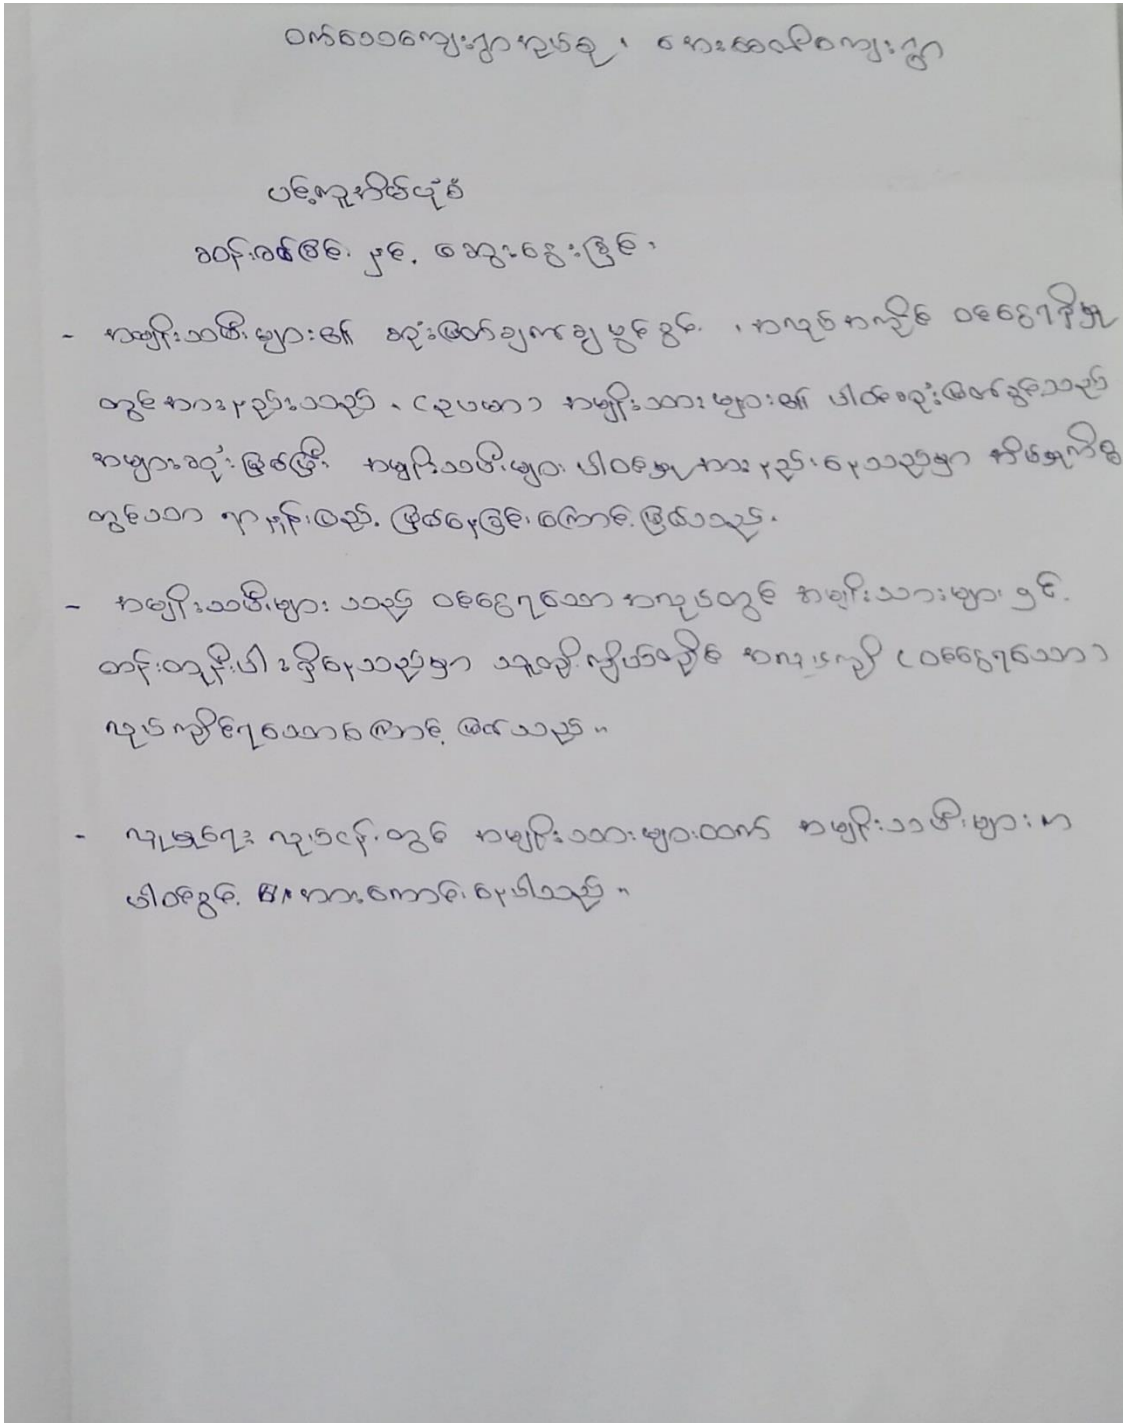 ဝက်သေကျေးရွာအုပ်စု ၊ အေးစေတီကျေးရွာ
ပင့်ကူအိမ်ပုံစံ
ခဝန်းခစ်ခြင်း နှင့် ဆွေးနွေးခြင်း
- အမျိုးသမီးများ၏ ဆုံးဖြတ်ချက်ချမှုပိုင်ခွင့် ၊ အလုပ်အကိုင် ဝင်ငွေရရှိမှု
တွင်အားနည်းသည် ၊ (ဥပမာ) အမျိုးသားများ၏ ပါဝင်ဆုံးဖြတ်ခွင့်သည်
အများဆုံးဖြစ်ပြီး အမျိုးသမီးများ ပါဝင်မှုအားနည်းနေသည်မှာ အိမ်မှုကိစ္စ
တွင်သာ ရာနှုန်းပြည့် ဖြစ်နေခြင်းကြောင့် ဖြစ်သည်။
- အမျိုးသမီးများ သည် ဝင်ငွေရသော အလုပ်တွင် အမျိုးသားများ နှင့်
တန်းတူနီးပါး ရှိနေသည်မှာ သူတို့ကိုယ်တိုင် အလုပ်ကို (ဝင်ငွေရသော)
လုပ်ကိုင်ရသောကြောင့် ဖြစ်သည်။
- လူမှုရေး လုပ်ငန်းတွင် အမျိုးသားများထက် အမျိုးသမီးများ က
ပါဝင်ခွင့် အားကောင်းနေပါသည်။